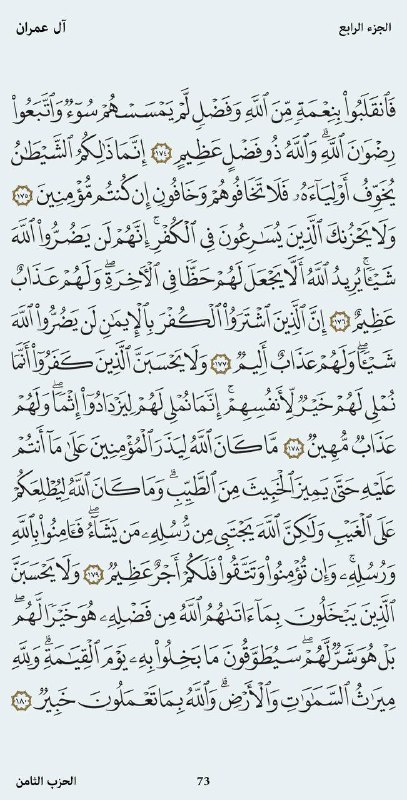 الجزء الرابع
آل عمران
فَٱنقَلَبُوا۟ بِنِعْمَةٍ مِّنَ ٱللَّهِ وَفَضْلٍ لَّمْ يَمْسَسْهُمْ سُوٓءٌ وَٱتَّبَعُوا۟
رِضْوَٰنَ ٱللَّهِ ۗ وَٱللَّهُ ذُو فَضْلٍ عَظِيمٍ ١٧٤ إِنَّمَا ذَٰلِكُمُ ٱلشَّيْطَٰنُ
يُخَوِّفُ أَوْلِيَآءَهُۥ فَلَا تَخَافُوهُمْ وَخَافُونِ إِن كُنتُم مُّؤْمِنِينَ ١٧٥
وَلَا يَحْزُنكَ ٱلَّذِينَ يُسَٰرِعُونَ فِى ٱلْكُفْرِ ۚ إِنَّهُمْ لَن يَضُرُّوا۟ ٱللَّهَ
شَيْـًٔا ۗ يُرِيدُ ٱللَّهُ أَلَّا يَجْعَلَ لَهُمْ حَظًّا فِى ٱلْـَٔاخِرَةِ ۖ وَلَهُمْ عَذَابٌ
عَظِيمٌ ١٧٦ إِنَّ ٱلَّذِينَ ٱشْتَرَوُا۟ ٱلْكُفْرَ بِٱلْإِيمَٰنِ لَن يَضُرُّوا۟ ٱللَّهَ
شَيْـًٔا ۖ وَلَهُمْ عَذَابٌ أَلِيمٌ ١٧٧ وَلَا يَحْسَبَنَّ ٱلَّذِينَ كَفَرُوٓا۟ أَنَّمَا
نُمْلِى لَهُمْ خَيْرٌ لِّأَنفُسِهِمْ ۚ إِنَّمَا نُمْلِى لَهُمْ لِيَزْدَادُوٓا۟ إِثْمًا ۖ وَلَهُمْ
عَذَابٌ مُّهِينٌ ١٧٨ مَّا كَانَ ٱللَّهُ لِيَذَرَ ٱلْمُؤْمِنِينَ عَلَىٰ مَآ أَنتُمْ
عَلَيْهِ حَتَّىٰ يَمِيزَ ٱلْخَبِيثَ مِنَ ٱلطَّيِّبِ ۗ وَمَا كَانَ ٱللَّهُ لِيُطْلِعَكُمْ
عَلَى ٱلْغَيْبِ وَلَٰكِنَّ ٱللَّهَ يَجْتَبِى مِن رُّسُلِهِۦ مَن يَشَآءُ ۖ فَـَٔامِنُوا۟ بِٱللَّهِ
وَرُسُلِهِۦ ۚ وَإِن تُؤْمِنُوا۟ وَتَتَّقُوا۟ فَلَكُمْ أَجْرٌ عَظِيمٌ ١٧٩ وَلَا يَحْسَبَنَّ
ٱلَّذِينَ يَبْخَلُونَ بِمَآ ءَاتَىٰهُمُ ٱللَّهُ مِن فَضْلِهِۦ هُوَ خَيْرًا لَّهُم ۖ
بَلْ هُوَ شَرٌّ لَّهُمْ ۖ سَيُطَوَّقُونَ مَا بَخِلُوا۟ بِهِۦ يَوْمَ ٱلْقِيَٰمَةِ ۗ وَلِلَّهِ
مِيرَٰثُ ٱلسَّمَٰوَٰتِ وَٱلْأَرْضِ ۗ وَٱللَّهُ بِمَا تَعْمَلُونَ خَبِيرٌ ١٨٠
73
الحزب الثامن